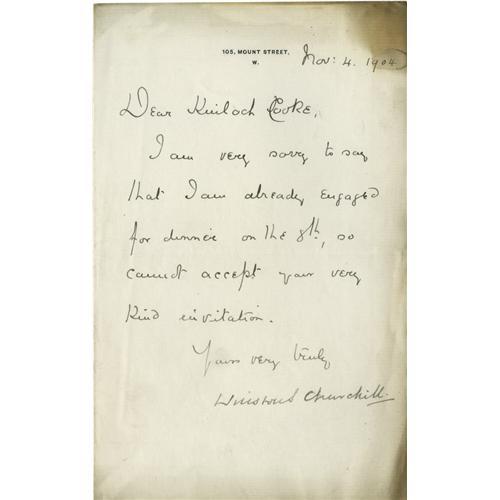 105, MOUNT STREET,
W.
Nov: 4. 1904
Dear Kinloch Cooke,
I am very sorry to say
that I am already engaged
for dinner on the 8th, so
cannot accept your very
kind invitation.
Yours very truly
Winston S. Churchill.